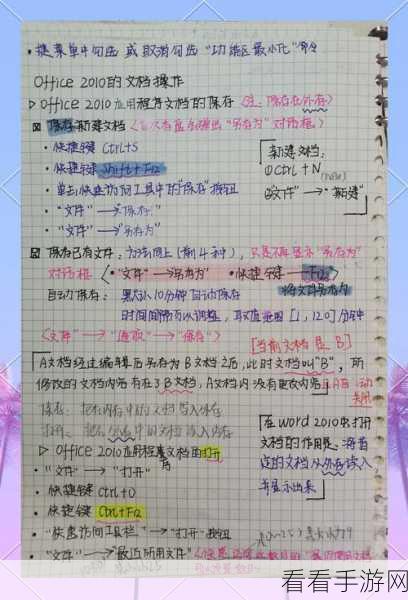 · 捷菜单中勾选 或 取消勾选 "功能区最小化"命令
Office 2010的文档操作
▷ Office 2010应用程序文档的保存 (注:保存在外存)
保存新建文档 (首次存盘会弹出"另存为"对话框)
· 快捷键 Ctrl+S
· 快捷键 Shift+F12
· 单击快速访问工具中的"保存"按钮
· "文件" → "保存"
· "文件" → "另存为"
新建文档:
①Ctrl+N
(new)
②"文件" → "新建"
保存已有文件: 方法同上(前4种), 只是不再显示"另存为"
对话框
· "文件" → "另存为" · 快捷键 — F12
将文档另存为
自动保存: 默认10分钟自动保存
时间间隔可以调整, 取值范围[1,120]分钟
<文件" → "选项" → "保存">
[当前文档是B]
A文档经过编辑后另存为B文档之后, 此时文档叫"B", 所
修改的文档内容存在于B文档, A文档内没有更改内容
A自动
关闭
保存: 把内存中的文档写入外存
打开: 把外存中的文档读入内存
▷ Office 2010应用程序文档的打开
· "文件" → "打开"
· 快捷键 Ctrl+O
· 快捷键 Ctrl+F12
· "快速访问工具栏" → "打开"按钮
· "文件" → "最近所用文件"
在word 2010中打开
文档的作用是: 将指
定的文档从外存读入
并显示出来
看看手游网